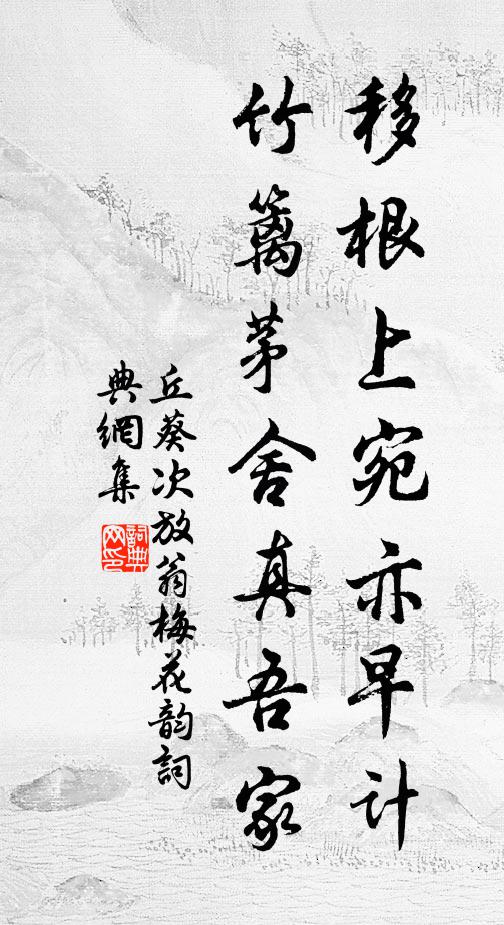 移根上宛亦早计
竹篱茅舍真吾家
丘葵次放翁梅花韵词
典網集
詞典网印